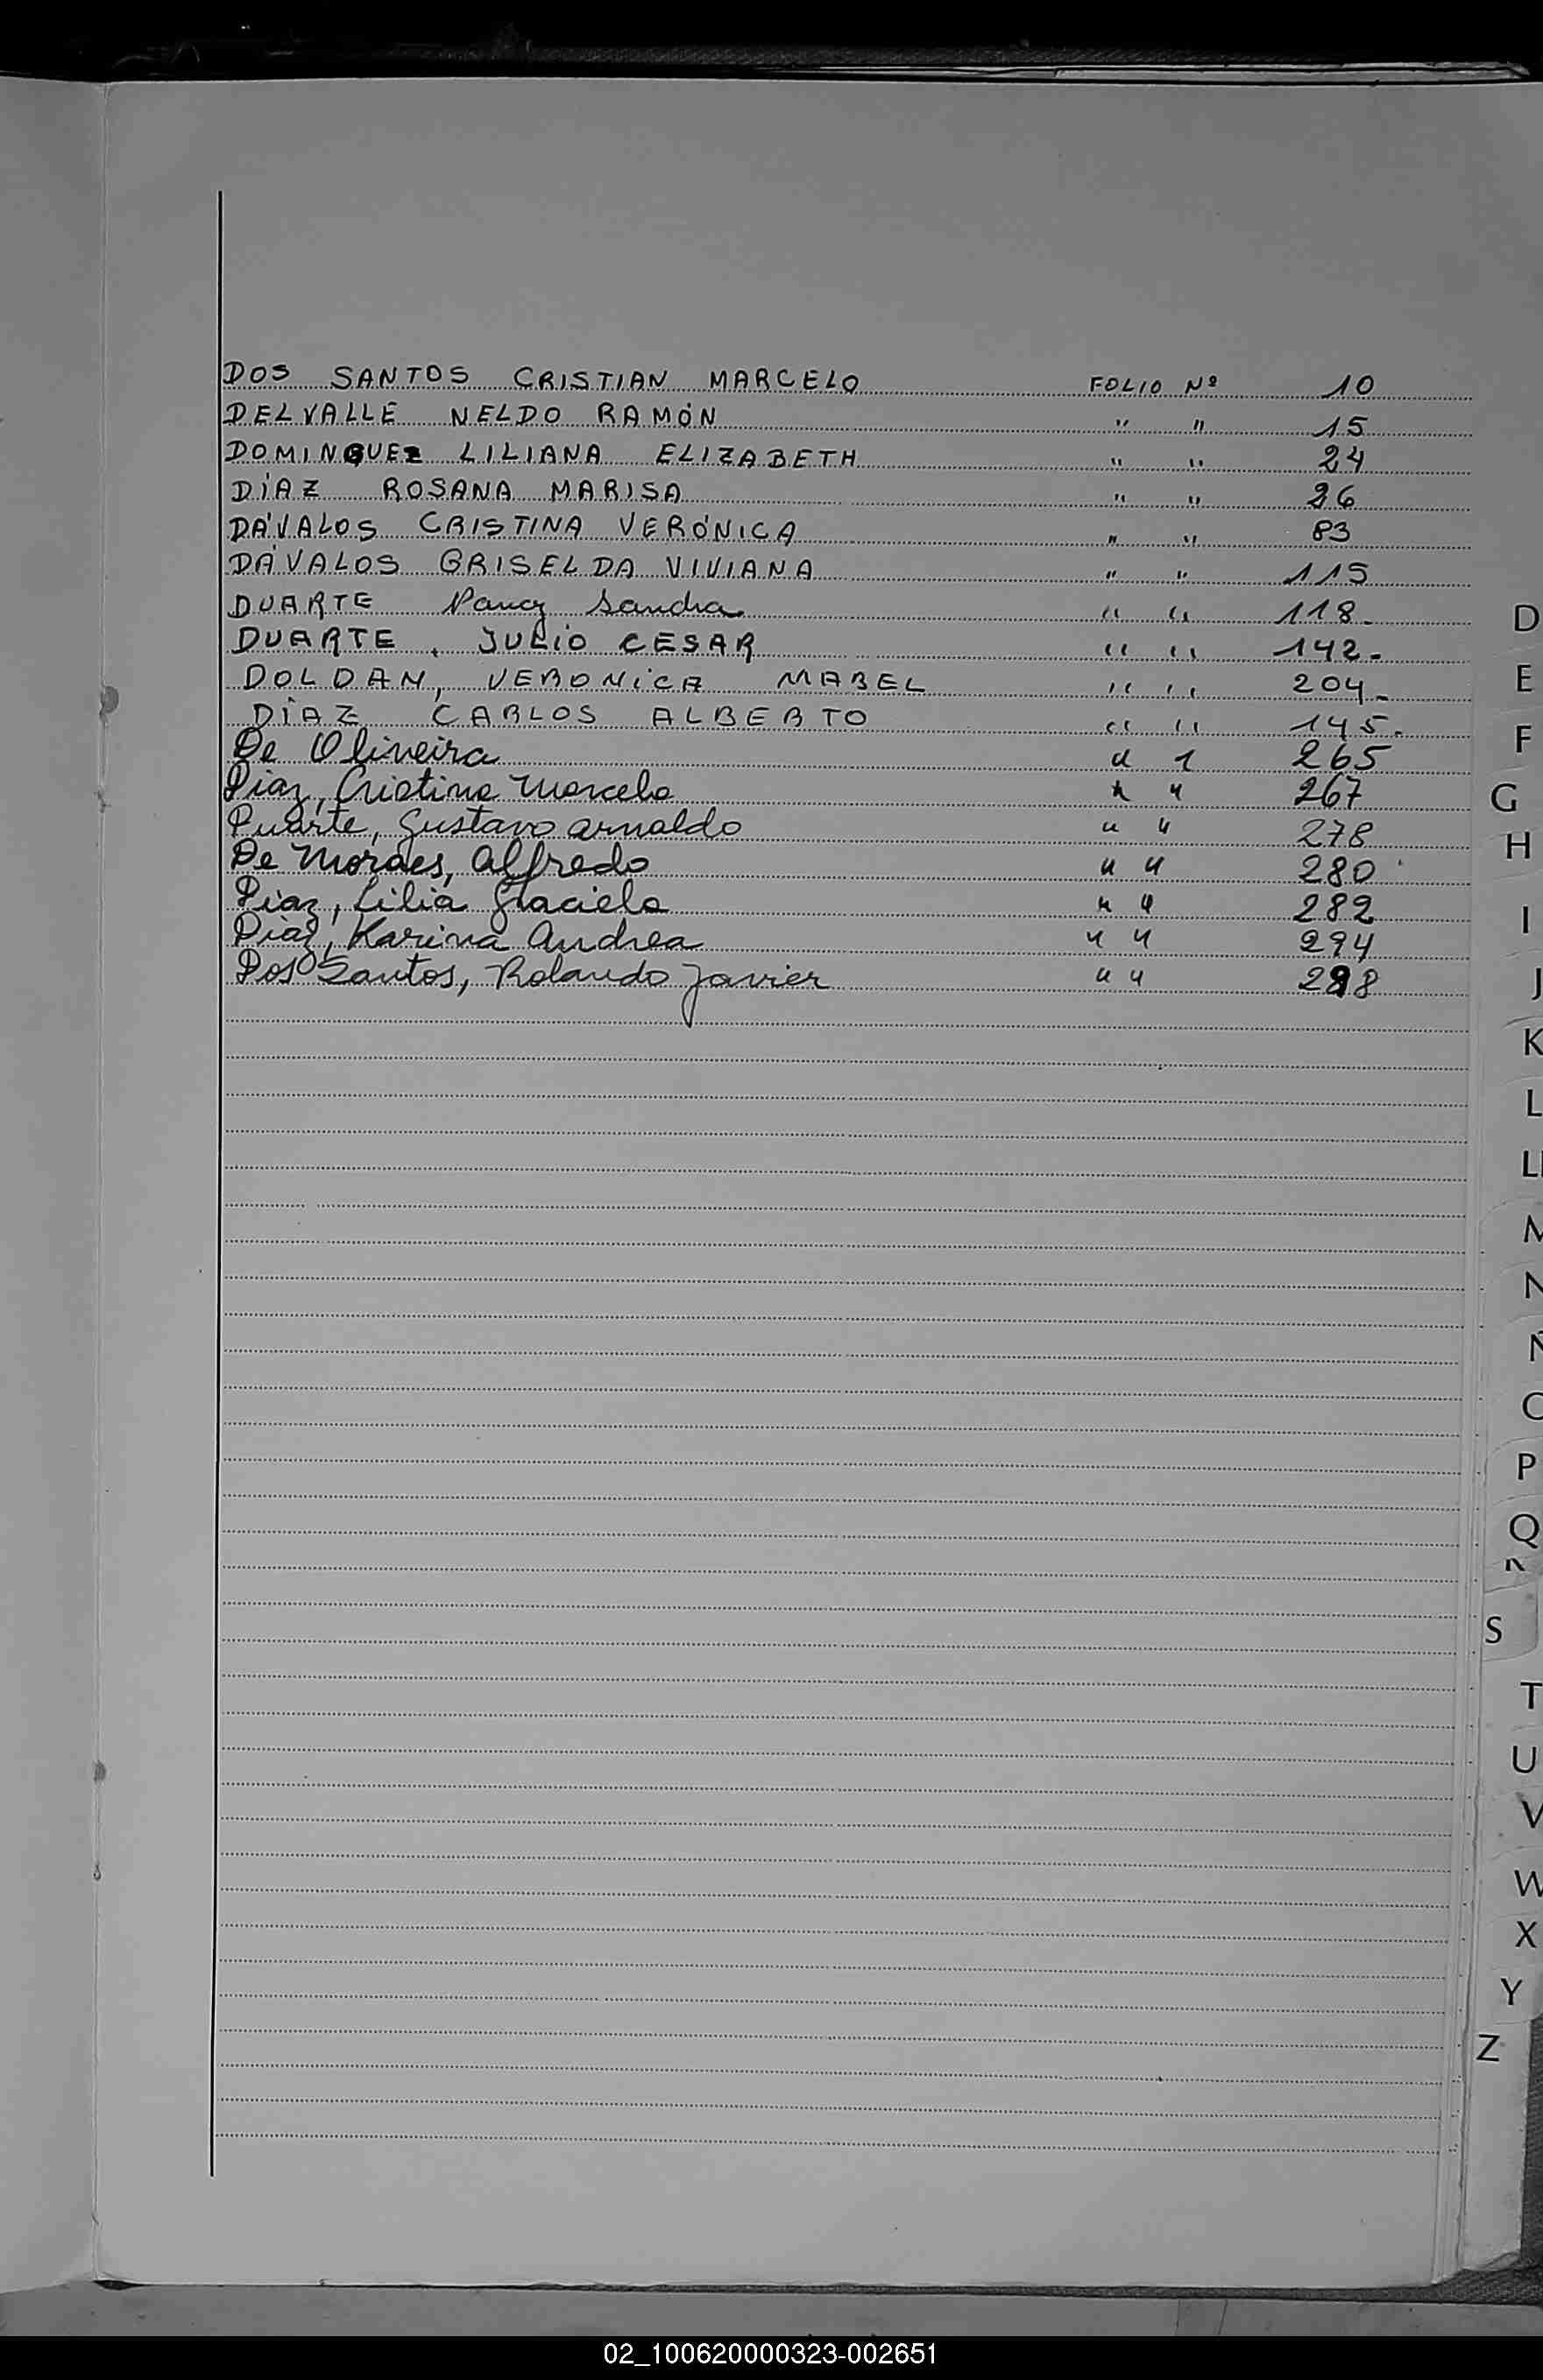 DOS SANTOS CRISTIAN MARCELO FOLIO Nº 10
DELVALLE NELDO RAMÓN " " 15
DOMINGUEZ LILIANA ELIZABETH " " 24
DÍAZ ROSANA MARISA " " 26
DÁVALOS CRISTINA VERÓNICA " " 83
DÁVALOS GRISELDA VIVIANA " " 115
DUARTE Nancy Sandra " " 118.
DUARTE, JULIO CESAR " " 142.
DOLDAN, VERONICA MABEL " " 204.
DÍAZ CARLOS ALBERTO " " 145.
De Oliveira " " 265
Diaz, Cristina Marcela " " 267
Duarte, Gustavo Arnaldo " " 278
De Moraes, Alfredo " " 280
Diaz, Lilia Graciela " " 282
Diaz, Karina Andrea " " 294
Dos Santos, Rolando Javier " " 298
D
E
F
G
H
I
J
K
L
Ll
M
N
Ñ
O
P
Q
R
S
T
U
V
W
X
Y
Z
02_100620000323-002651